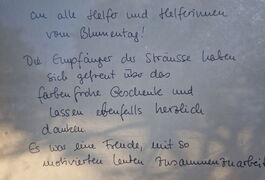 an alle Helfer und Helferinnen
vom Blumentag!
Die Empfänger der Sträusse haben
sich gefreut über das
farben frohe Geschenke und
lassen ebenfalls herzlich
danken.
Es war eine Freude, mit so
motivierten Leuten zusammenzuarbeit